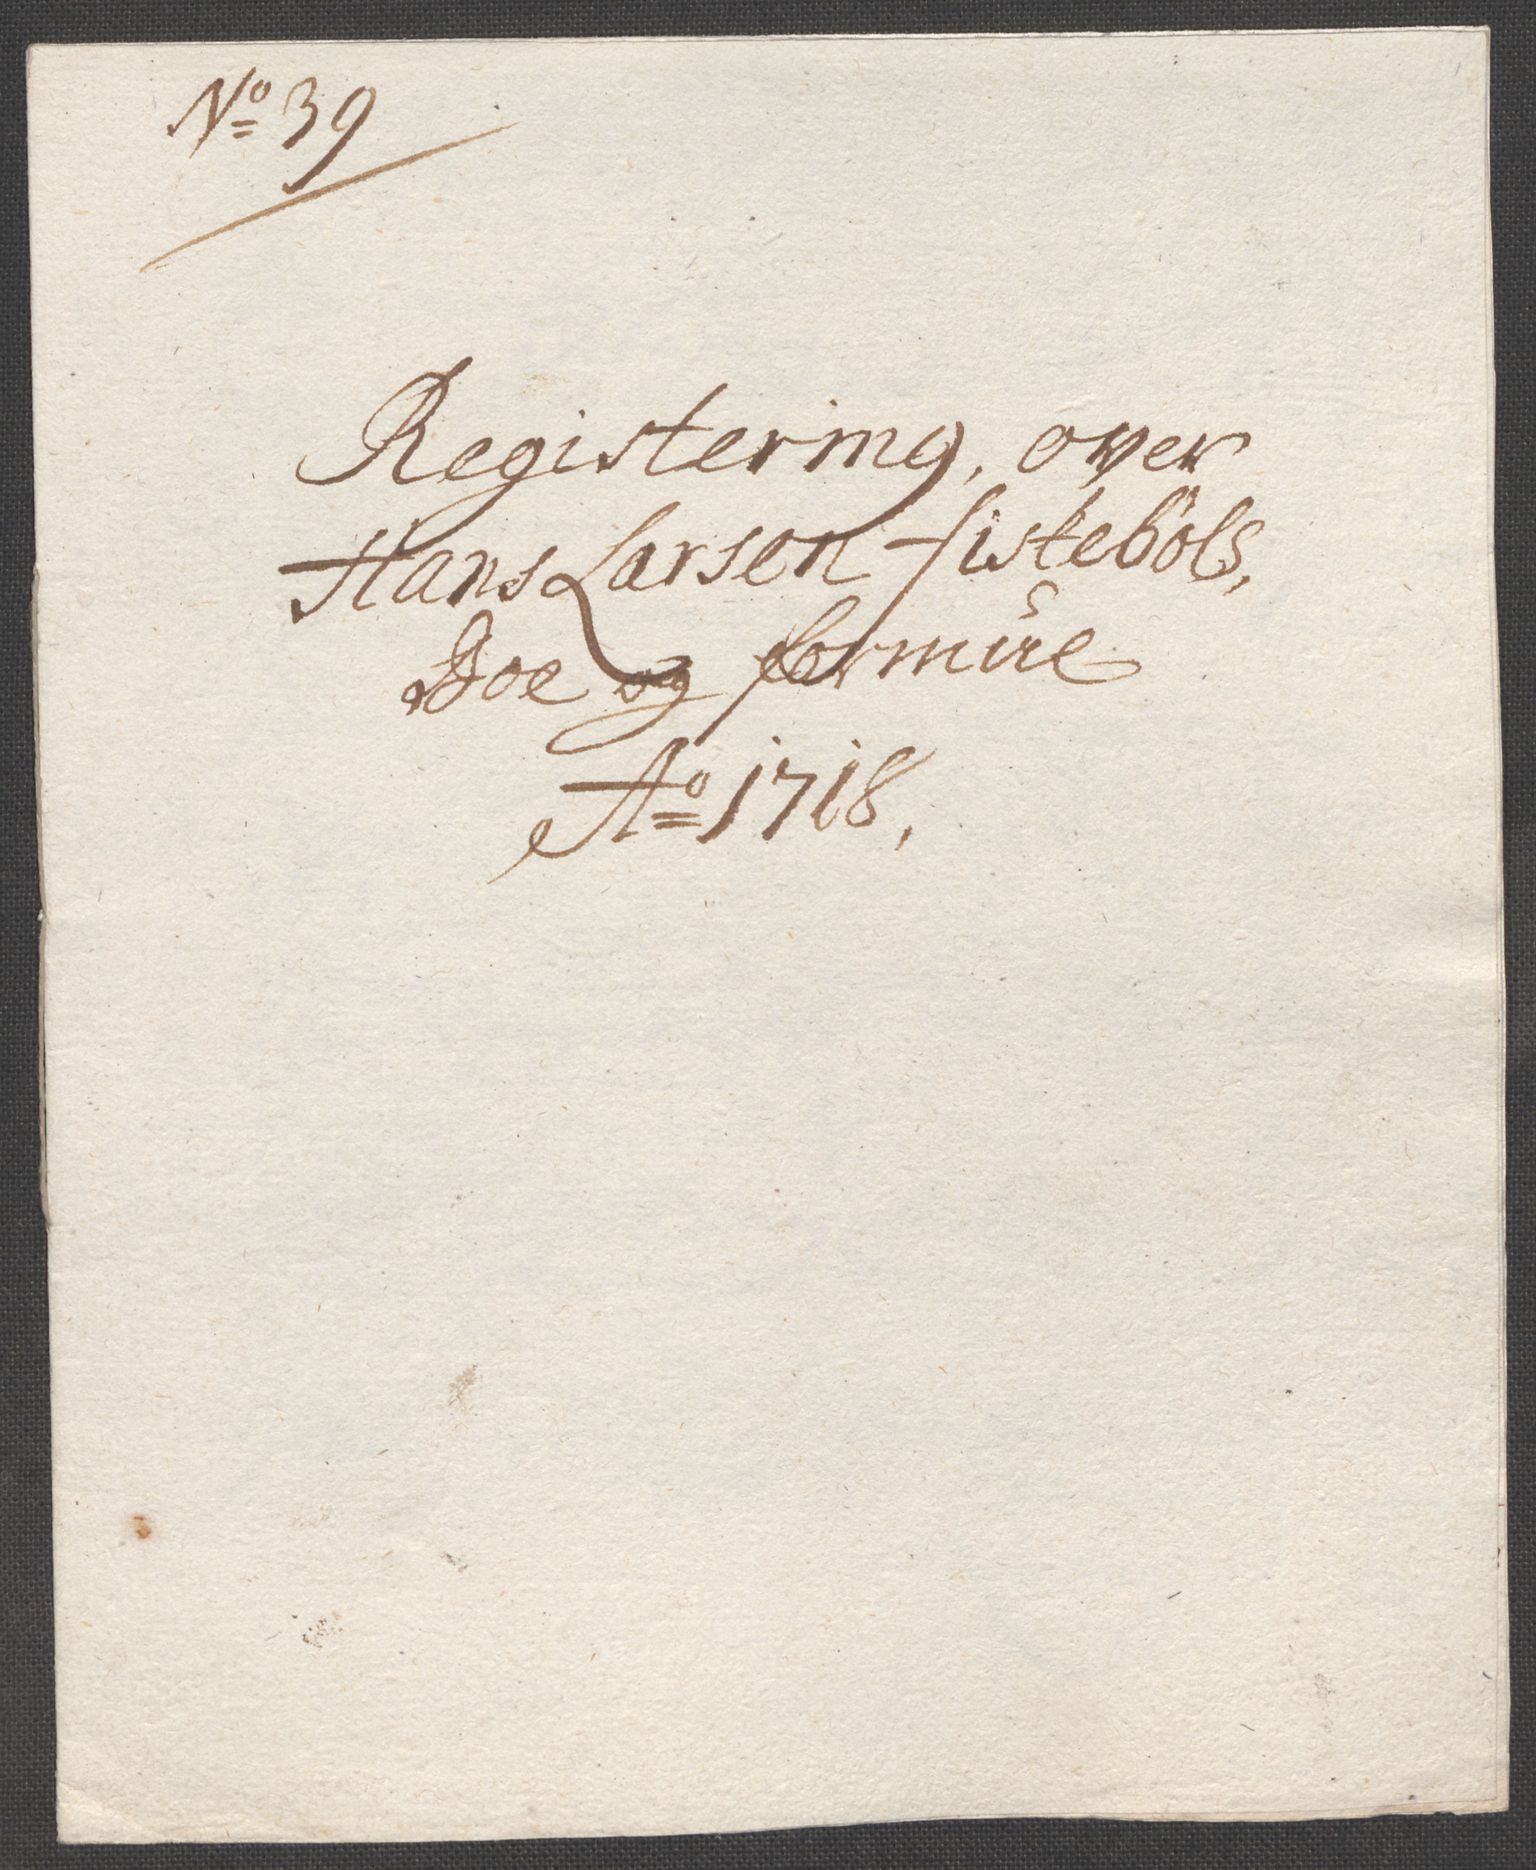 No 39
Registering, over
Hans Larsen fistebøls,
Boe og formue
Ao 1718,